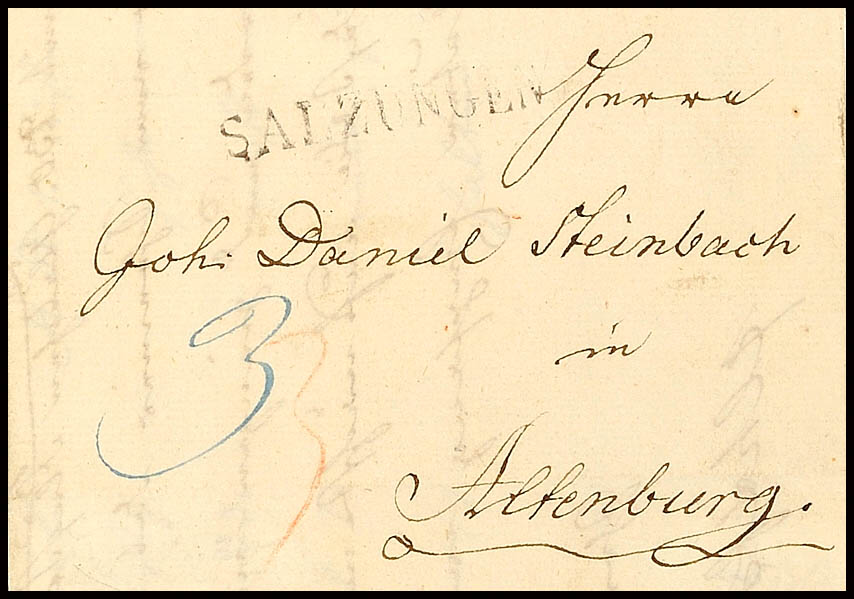 SALZUNGEN
Herrn
Joh. Daniel Steinbach
in
Altenburg.
3
3